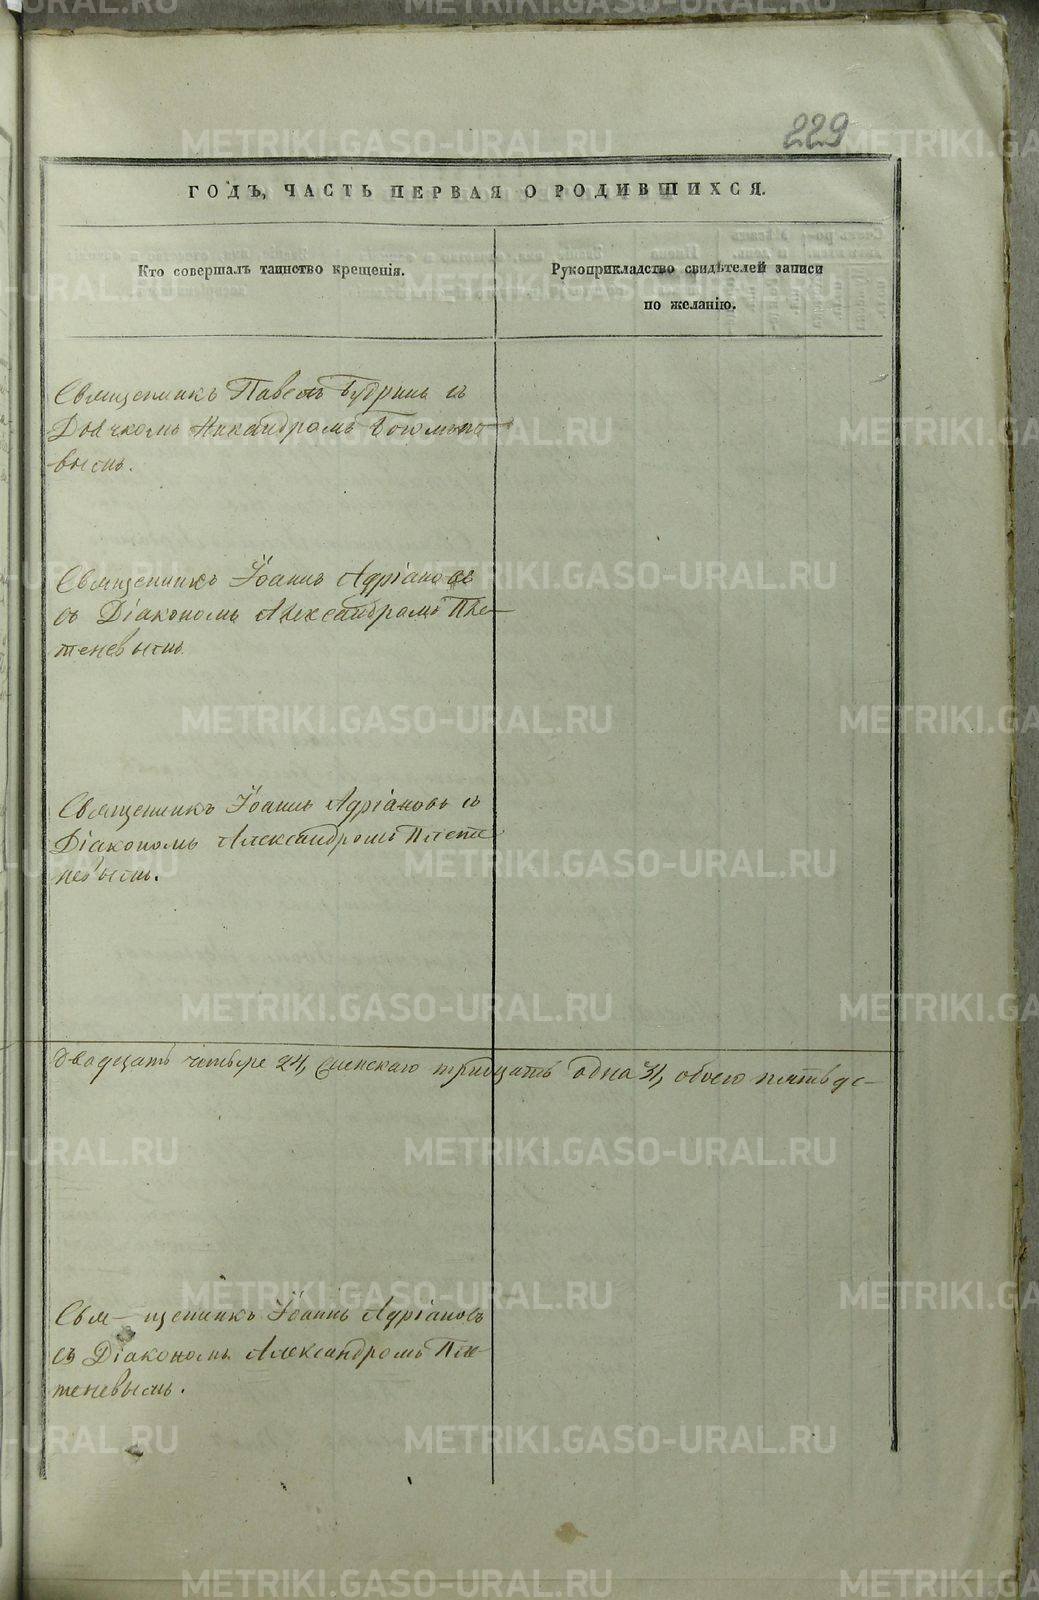 229
ГОДЪ, ЧАСТЬ ПЕРВАЯ О РОДИВШИХСЯ.
Кто совершалъ таинство крещенія.
Рукоприкладство свидѣтелей записи
по желанію.
Священникъ Павелъ Будринъ съ
Дьячкомъ Никандромъ
вымъ.
Священникъ Іоаннъ Адріановъ
съ Діакономъ Александромъ Пле-
теневымъ
Священникъ Іоаннъ Адріановъ съ
Діакономъ Александромъ Плете
невымъ.
двадцать четыре 24, женскаго тридцать одна 31, обоего пятьде-
Свя-щенникъ Іоаннъ Адріановъ
съ Діакономъ Александромъ Пле-
теневымъ.
METRIKI.GASO-URAL.RU